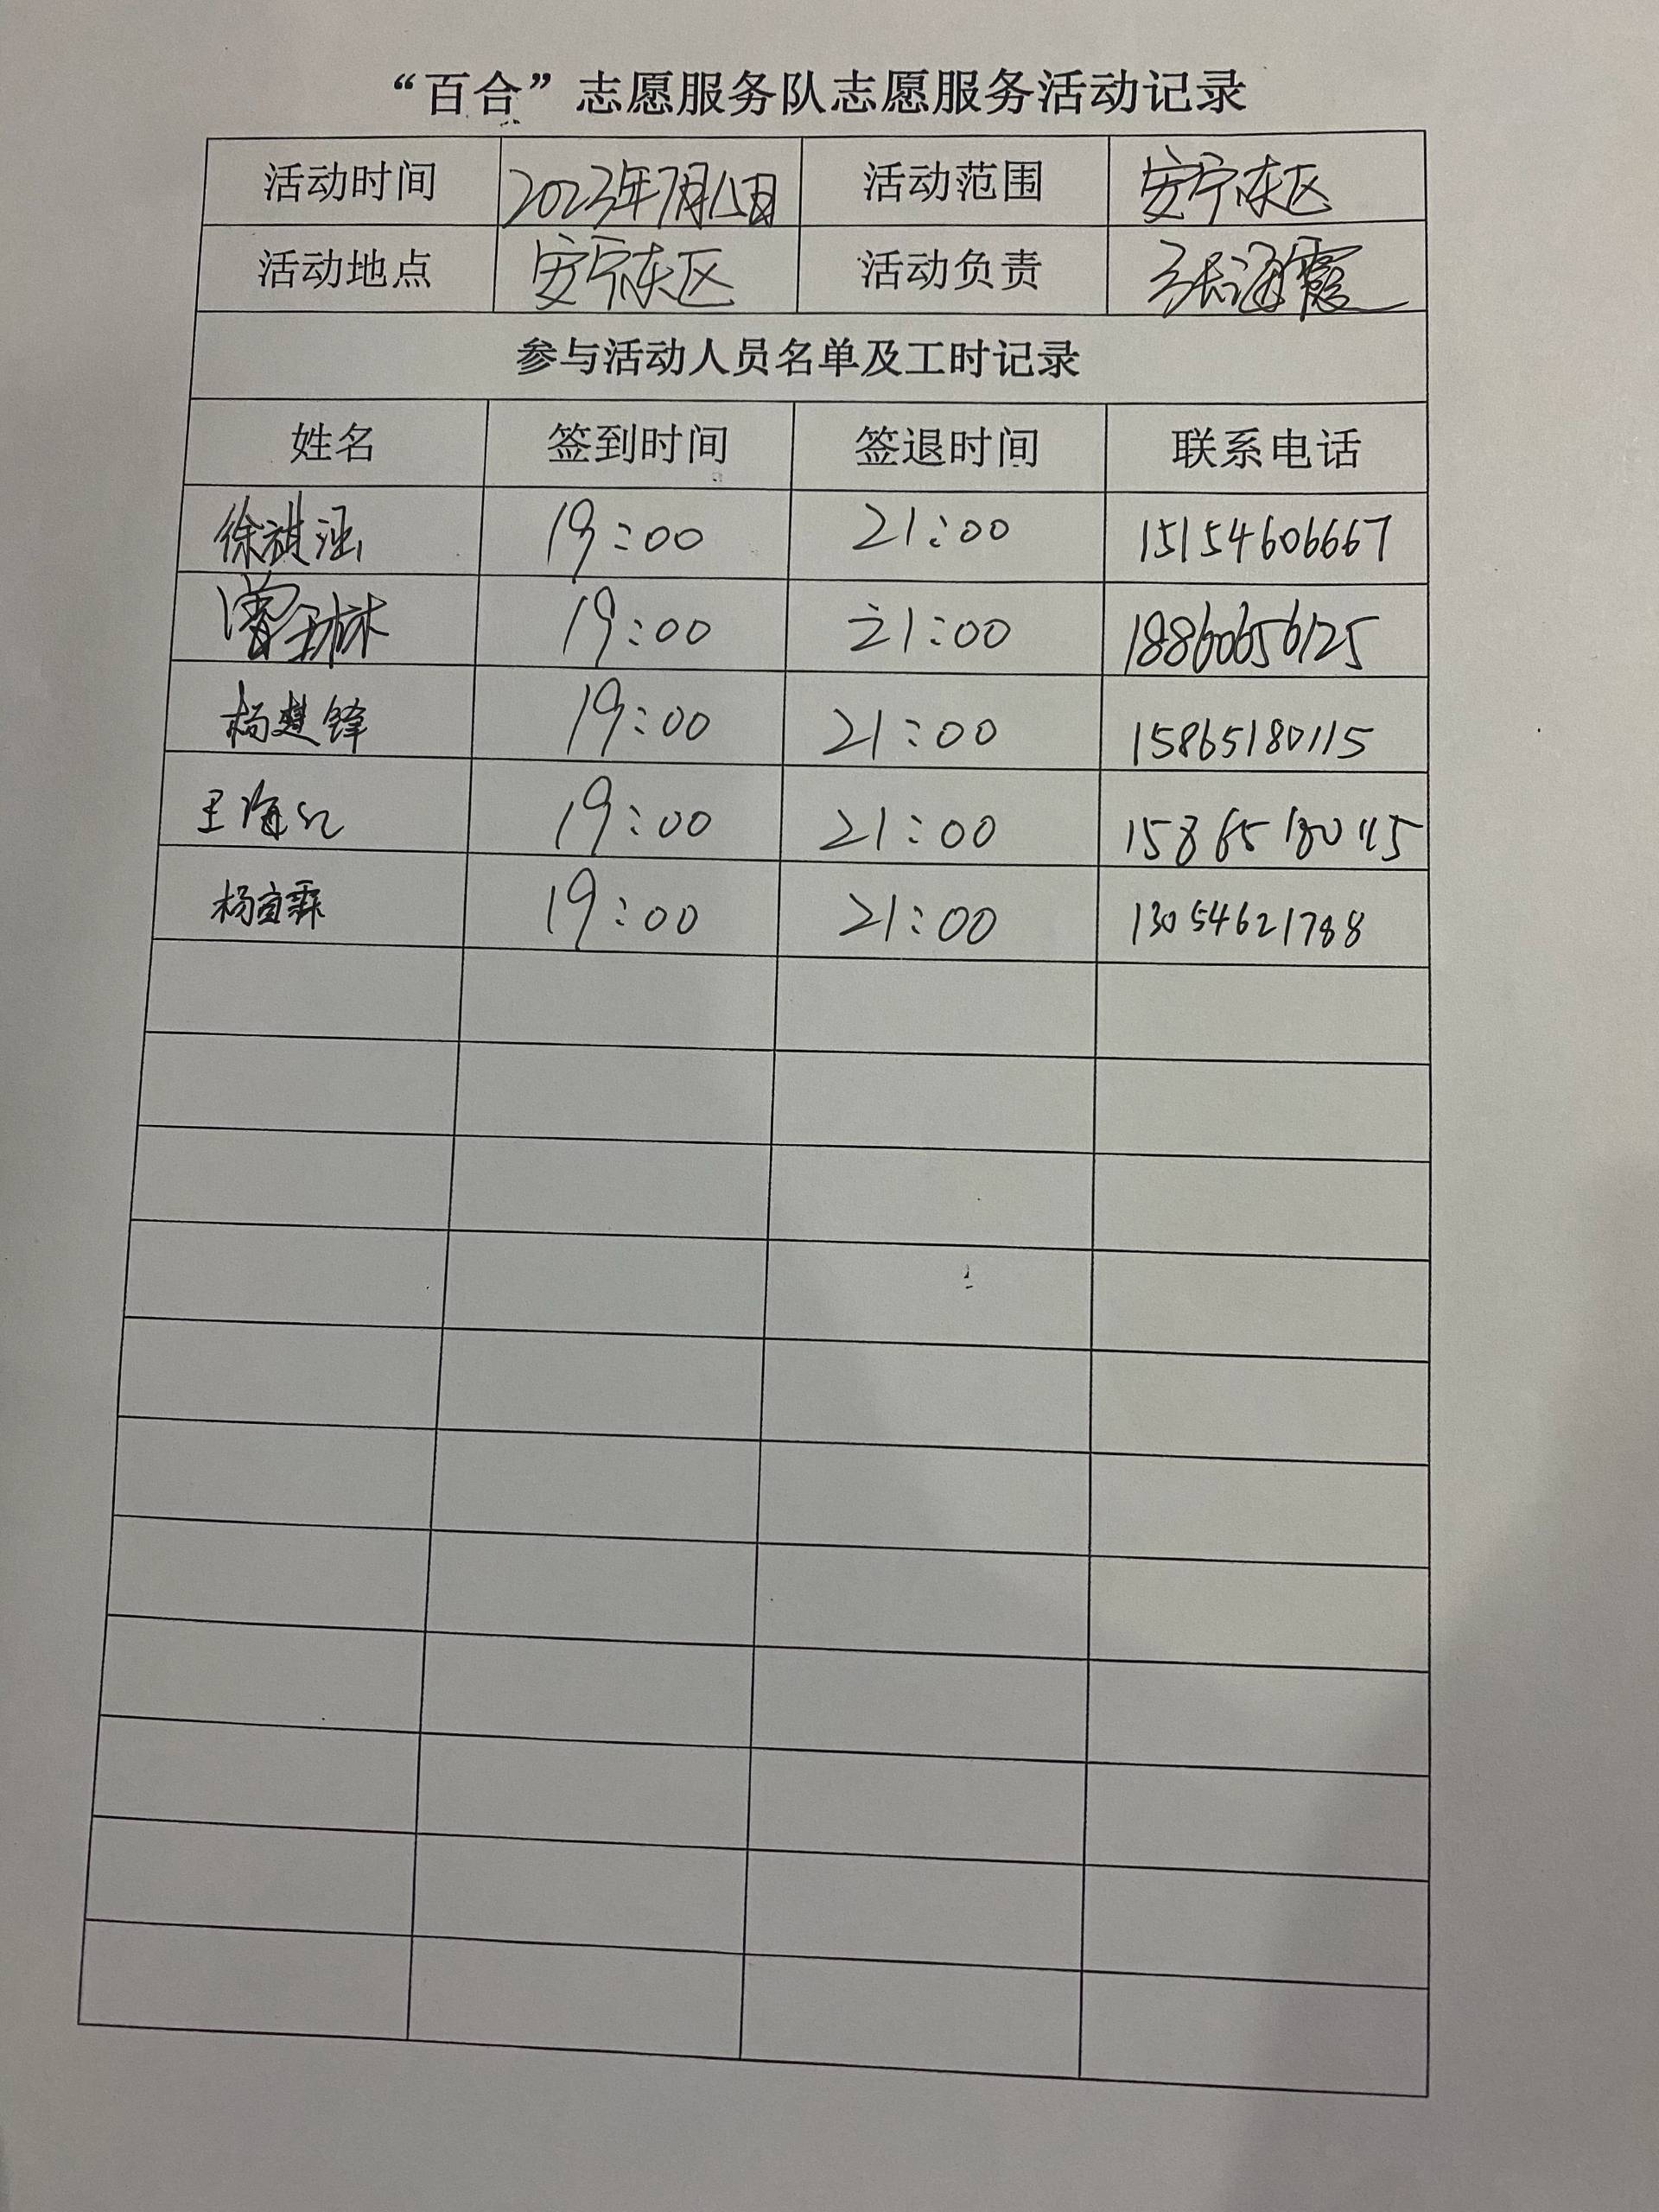 “百合”志愿服务队志愿服务活动记录
活动时间 2023年7月15日 活动范围 安宁东区
活动地点 安宁东区 活动负责 张海霞
参与活动人员名单及工时记录
姓名 签到时间 签退时间 联系电话
徐祺涵 19:00 21:00 15154606667
曹玉林 19:00 21:00 18860656125
杨楚锋 19:00 21:00 15865180115
王海红 19:00 21:00 15865180115
杨宜霖 19:00 21:00 13054621788